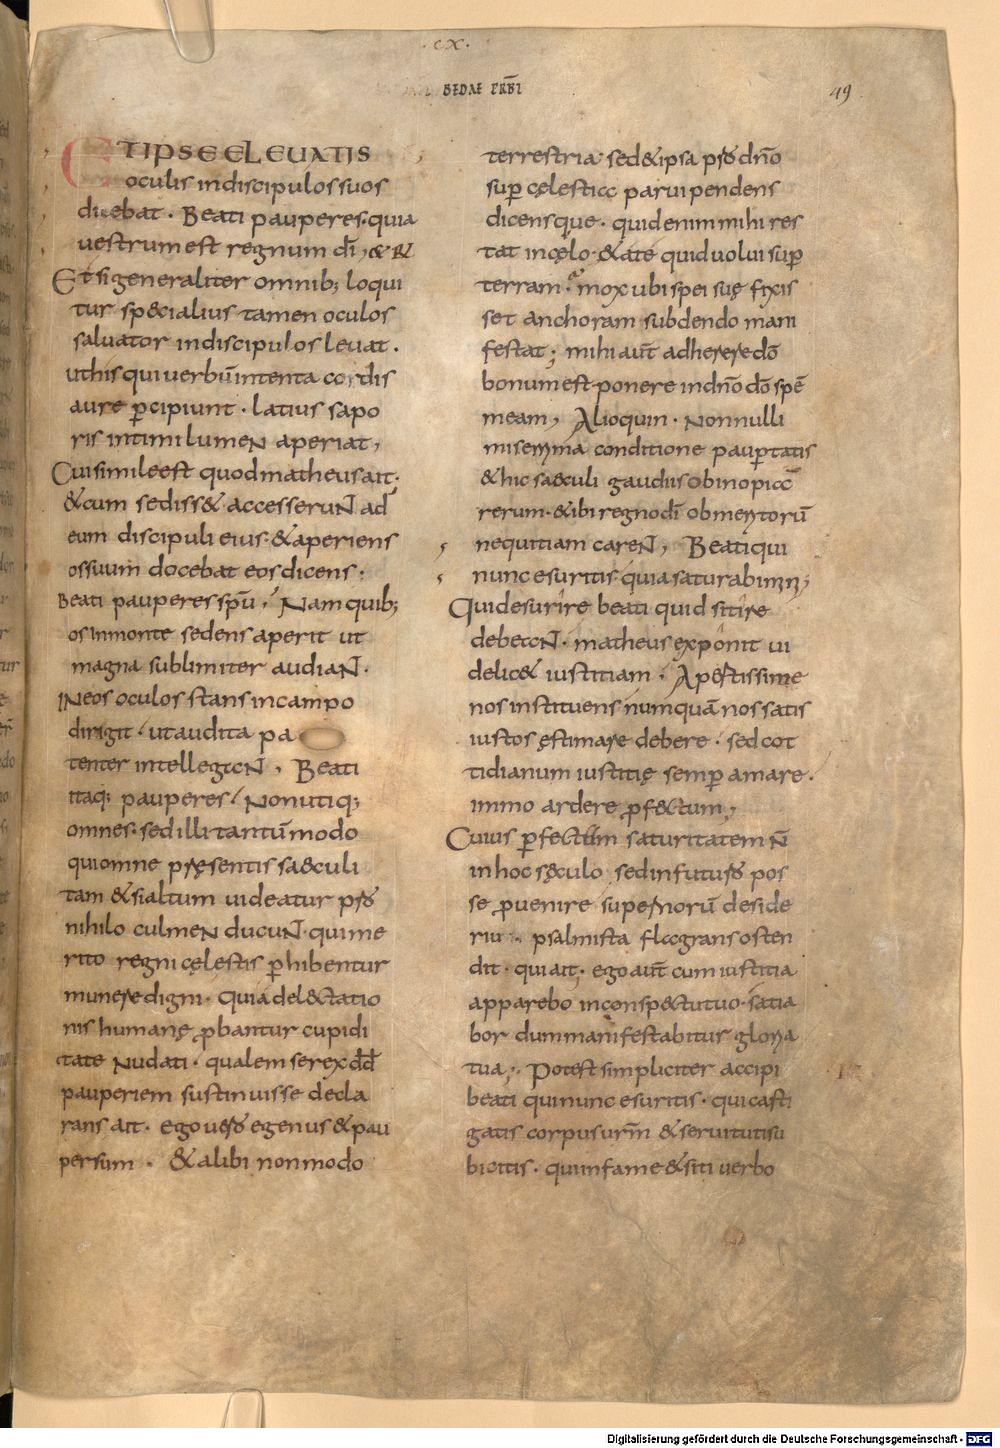 · cx ·
BEDAE PRBI
49
ET IPSE ELEUATIS
oculis indiscipulos suos
dicebat · Beati pauperes · quia
uestrum est regnum dī, & rł
Et si generaliter omnib; loqui
tur sp&cialius tamen oculos
saluator indiscipulos leuat .
uthis qui uerbū intenta cordis
aure pcipiunt · latius sapo
ris intimi lumen aperiat,
Cui simile est quod matheus ait ·
& cum sediss& accesserunt ad
eum discipuli eius & aperiens
os suum docebat eos dicens :
Beati pauperes spū, Nam quib;
os inmonte sedens aperit ut
magna sublimiter audiant ·
Ineos oculos stans incampo
dirigit · ut audita pa
tenter intellegant, Beati
itaq; pauperes · Non utiq;
omnes · sed illi tantū modo
qui omne pręsentis sa&culi
tam & si altum uideatur p
nihilo culmen ducunt · qui me
rito regni cęlestis phibentur
munere digni · quia del&ctatio
nis humanę pbantur cupidi
tate nudati · qualem se rex dd
pauperiem sustinuisse decla
rans ait · ego uero egenus & pau
per sum · & alibi non modo
terrestria sed & ipsa p dnō
sup cęlesticc paruipendens
dicensque · quid enim mihi res
tat incęlo · & ate quid uolui sup
terram · mox ubi spei suę fixis
set anchoram subdendo mani
festat ; mihi aūt adherere dō
bonum est ponere indnō dō spē
meam, Alioquin · Nonnulli
miserrima conditione pauptatis
& hic sa&culi gaudiis ob inopicc
rerum · & ibi regno dī ob mentorū
nequitiam carent, Beati qui
nunc esuritis quia saturabimini;
Qui desurire beati quid sitire
debeant · matheus exponit ui
delic& iustitiam · Apertissime
nos instituens numquā nos satis
iustos ęstimare debere · sed cot
tidianum iustitię semp amare ·
immo ardere pf&ctum,
Cuius pfectum saturitatem ñ
in hoc sęculo sed infuturo pos
se puenire supernorū deside
riu · psalmista flccgrans osten
dit · qui ait · ego aūt cum iustitia
apparebo inconsp&ctu tuo · satia
bor dum manifestabitur gloria
tua, · Potest simpliciter accipi
beati qui nunc esuritis · qui casti
gatis corpus urm̄ & seruituti su
bicitis · qui in fame & siti uerbo
Digitalisierung gefördert durch die Deutsche Forschungsgemeinschaft - DFG